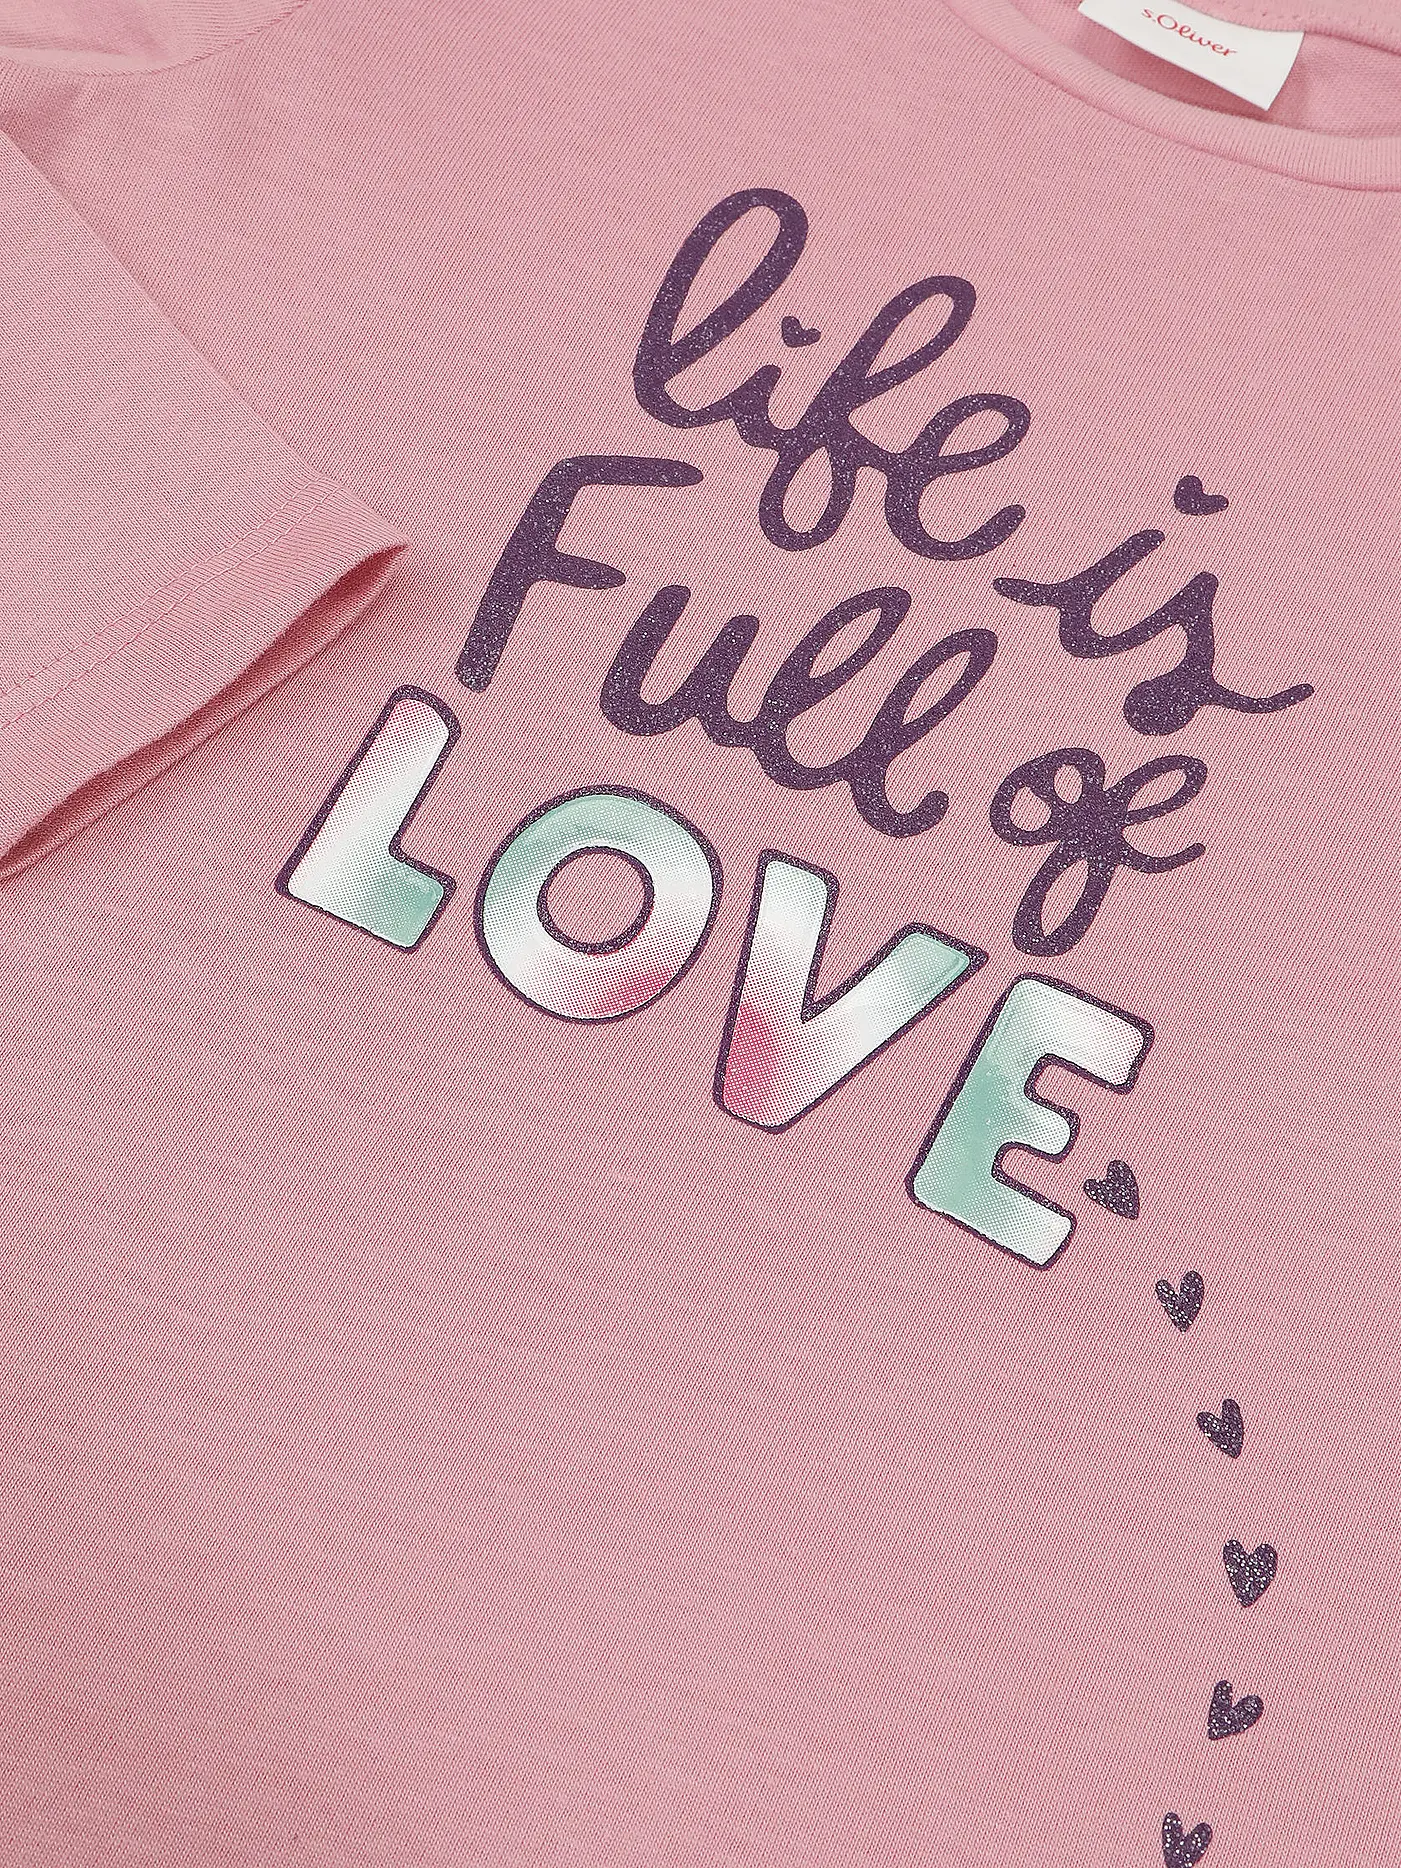 s.Oliver
life is
Full of
LOVE